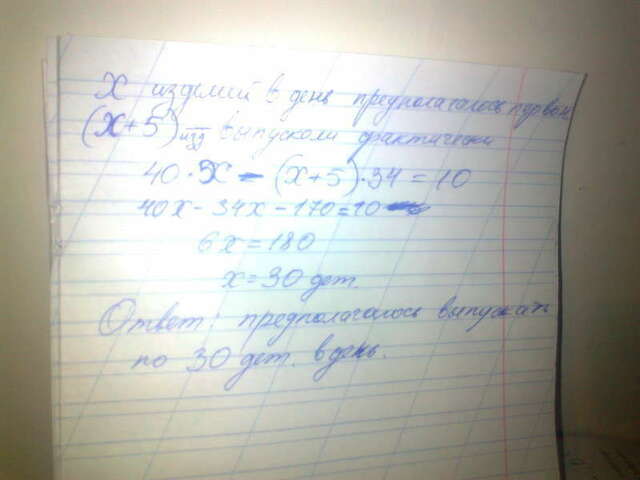 X изделий в день предполагалось первон
(X+5) изд выпускали фактически
40·X - (X+5)·34 = 10
40X - 34X - 170 = 10
6X = 180
X = 30 дет.
Ответ: предполагалось выпускать
по 30 дет. в день.